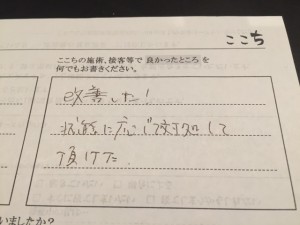 ここち
ここちの施術、接客等で良かったところを
何でもお書きください。
改善した!
状態に応じて対処して
頂けた.
いましたか?